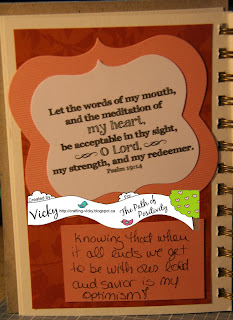 Let the words of my mouth,
and the meditation of
my heart,
be acceptable in thy sight,
O Lord,
my strength, and my redeemer.
Psalm 19:14
Created by
Vicky http://crafting-vicky.blogspot.ca
for
The Path of
Positivity
Knowing that when
it all ends we get
to be with our Lord
and savior is my
optimism